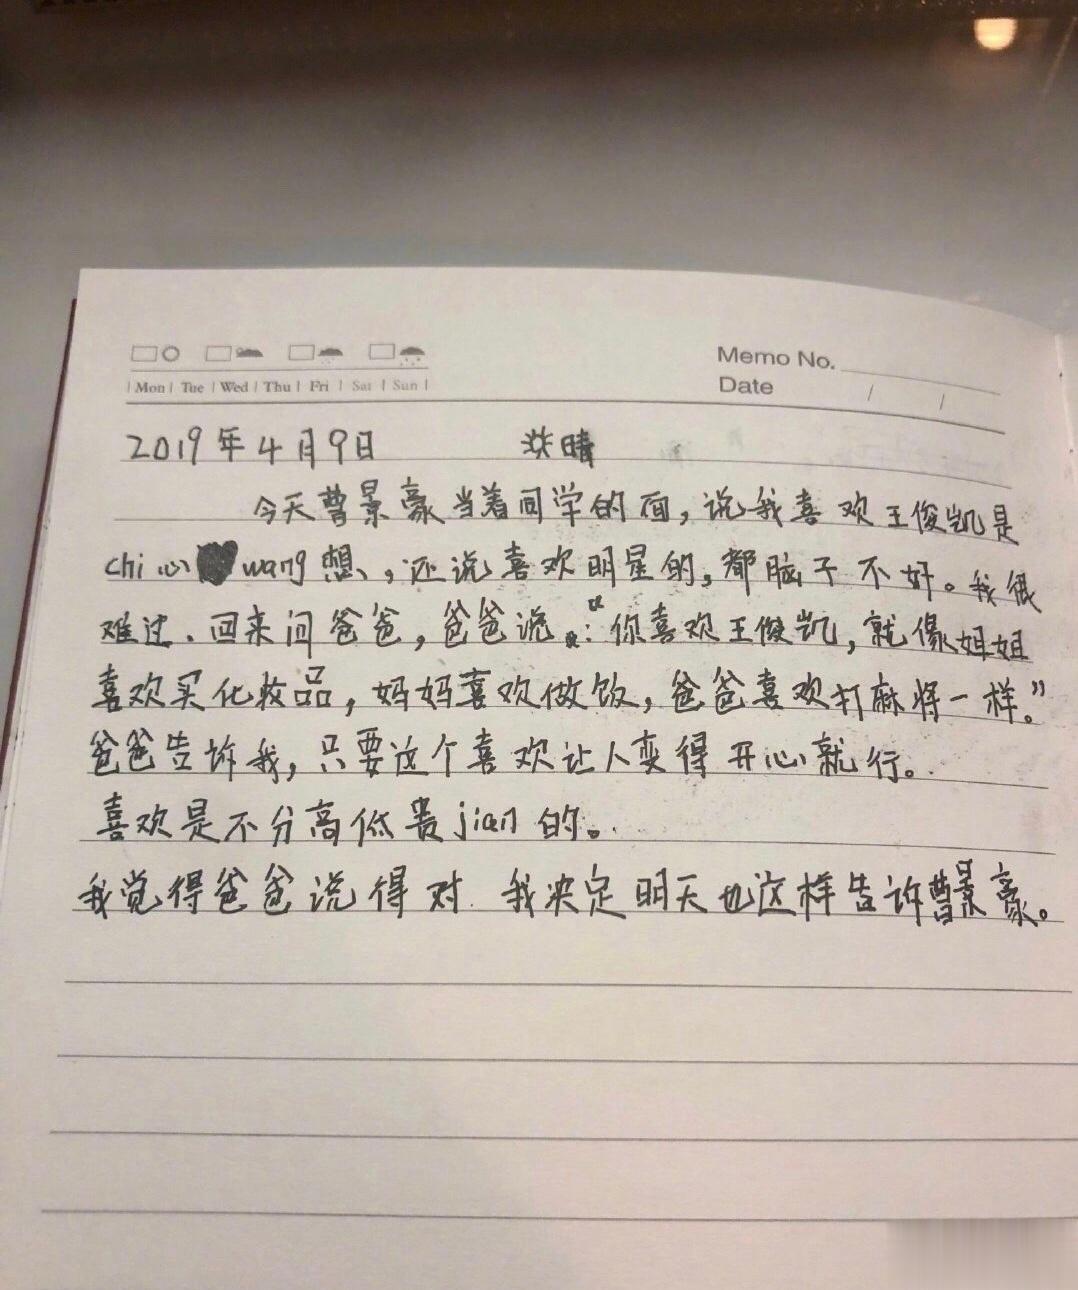 Memo No.
Mon Tue Wed Thu Fri Sat Sun
Date / /
2019年4月9日 晴
今天曹景豪当着同学的面,说我喜欢王俊凯是
chi心wang想,还说喜欢明星的,都脑子不好。我很
难过.回来问爸爸,爸爸说:“你喜欢王俊凯,就像姐姐
喜欢买化妆品,妈妈喜欢做饭,爸爸喜欢打麻将一样。”
爸爸告诉我,只要这个喜欢让人变得开心就行。
喜欢是不分高低贵jian的。
我觉得爸爸说得对.我决定明天也这样告诉曹景豪。